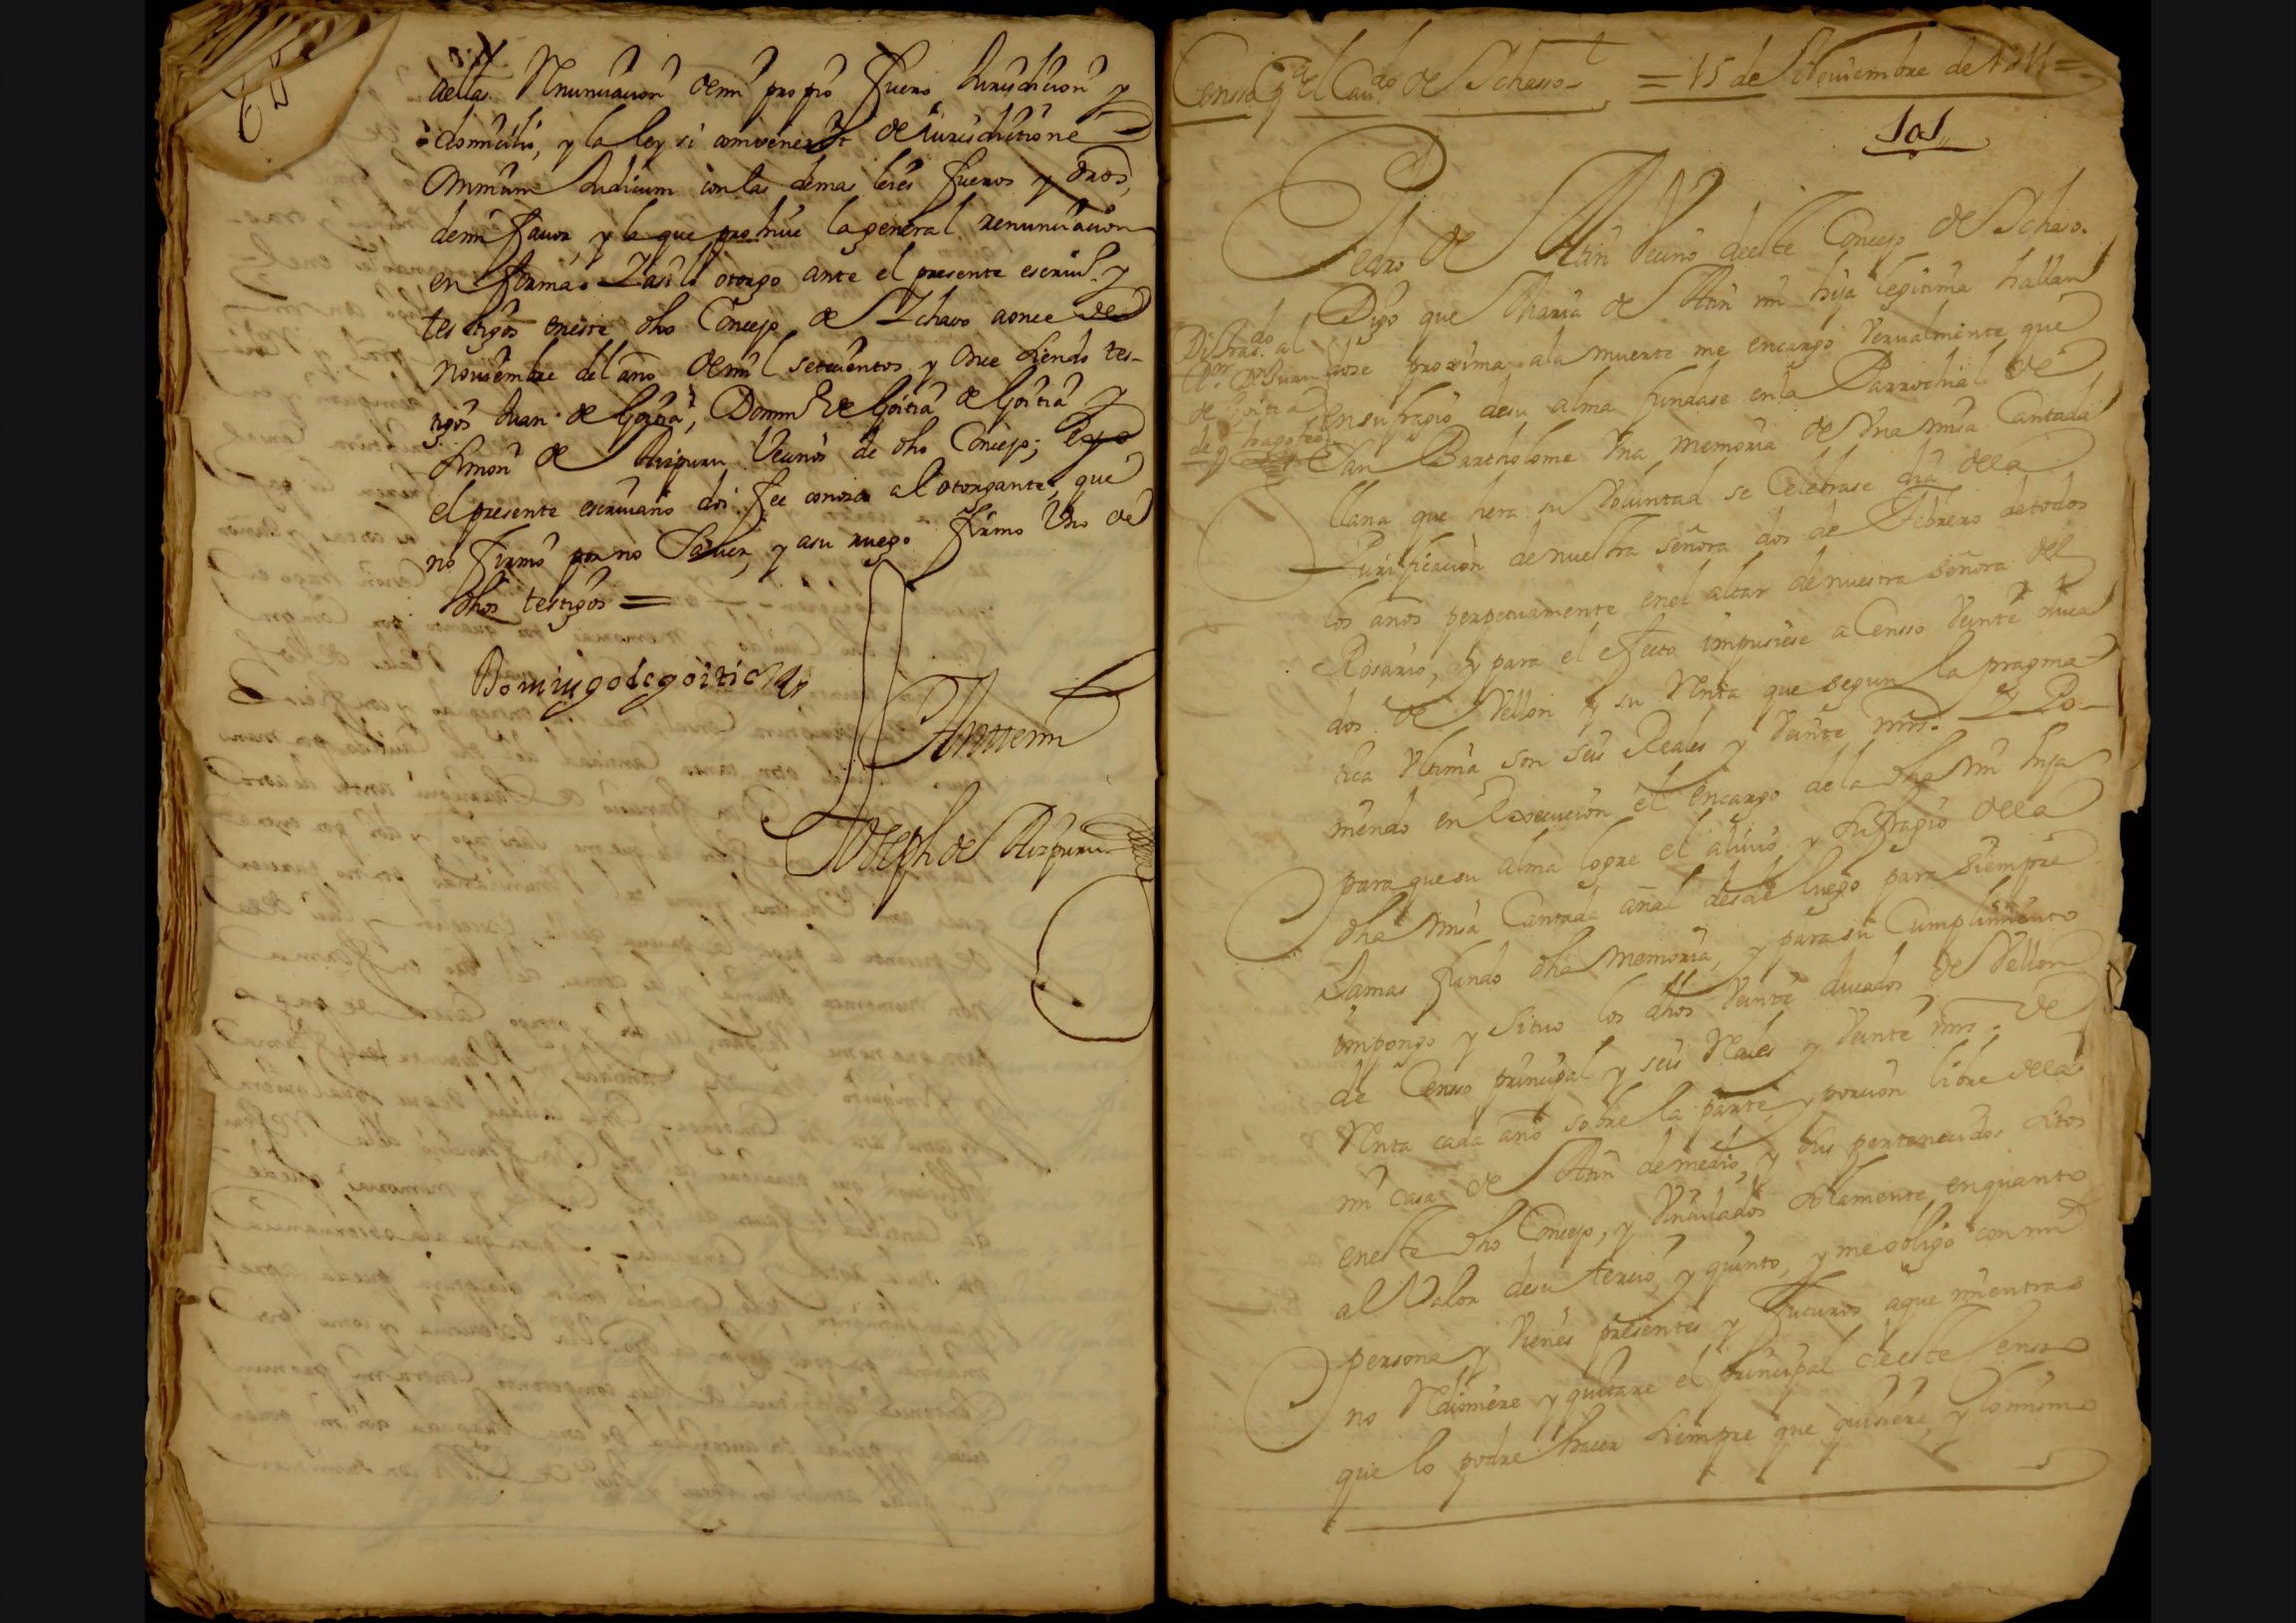 dellas. Renunciacion de mi propio fuero Jurisdicion y
domicilio, y la ley si convenerit de iurisdictione
omnium Judicum con las demas leies fueros y dros,
de mi favor, y la que prohive la general renunciacion
en forma. Y asi lo otorgo ante el presente escriuo. y
testigos en este dho Concejo de Ichaso a once de
noviembre del año de mil setecientos y once siendo tes-
tigos Juan de Goitia, Domingo de Goitia de Goitia y
Simon de Aizpuru Vecinos de dho Concejo; E yo
el presente escriuano doi fee conozco al otorgante, que
no firmo por no Saver, y a su ruego firmo Uno de
dhos testigos =
Domingo de goitia
Ante mi
Joseph de Aizpuru
Censso Pa. el Cavdo. de Ichasso = 15 de Noviembre de 1711 =
101
Pedro de Atin Vecino de este Concejo de Ichaso.
Digo que Maria de Atin mi hija legitima hallan
dose proxima a la muerte me encargo Verualmente que
en sufragio de su alma fundase en la Parrochial de
San Bartholome Una memoria de Una misa Cantada
llana que hera su Voluntad se Celebrase dia de la
Purificacion de nuestra señora dos de Febrero de todos
los años perpetuamente en el altar de nuestra señora del
Rosario, y para el efecto impusiese a Censso Veinte duca
dos de Vellon y su Renta que segun la pragma-
tica Ultima son seis Reales y Veinte mrs. Y Po-
niendo en execucion el encargo de la dha mi hija
para que su alma logre el alivio y sufragio de la
dha misa Cantada añal desde luego para siempre
Jamas fundo dha memoria, y para su Cumplimiento
impongo y Situo los dhos Veinte ducados de Vellon
de Censso principal y seis Reales y Veinte mrs. de
Renta cada año sobre la parte, y porcion libre de la
mi casa de Atin de medio, y sus pertenecidos sitos
en este dho Concejo, y Vinculados solamente en quanto
al Valor de su tercio y quinto, y me obligo con mi
persona y Vienes presentes y futuros a que mientras
no Redimiere y quitare el principal de este Censso
que lo podre hacer siempre que quisiere, y lo mismo
de Juan
de Goitia